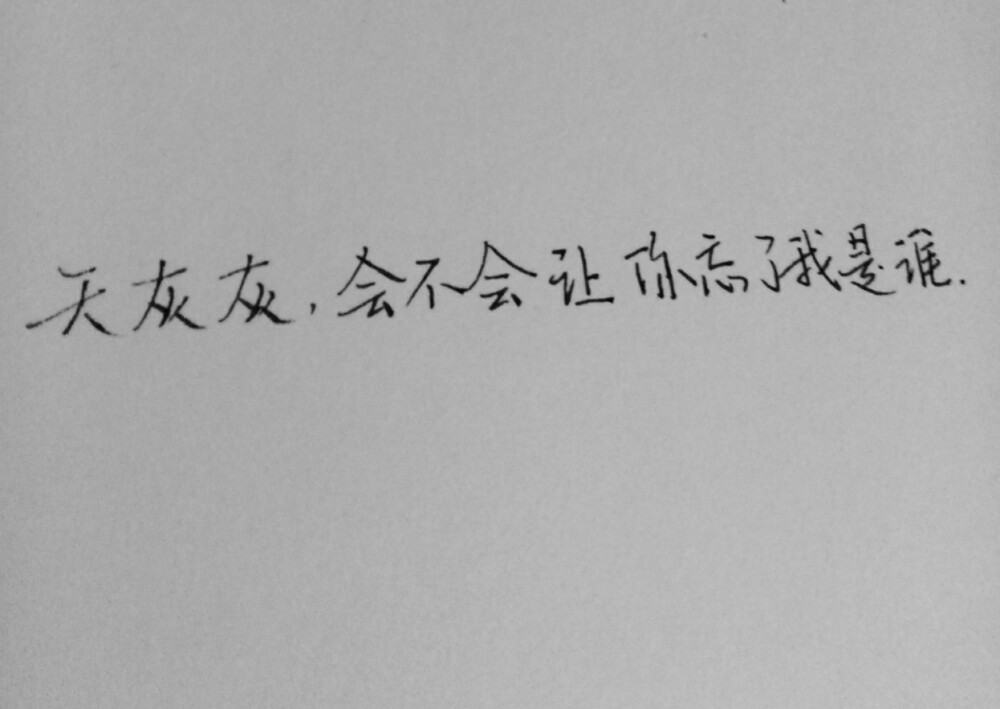 天灰灰,会不会让你忘了我是谁.